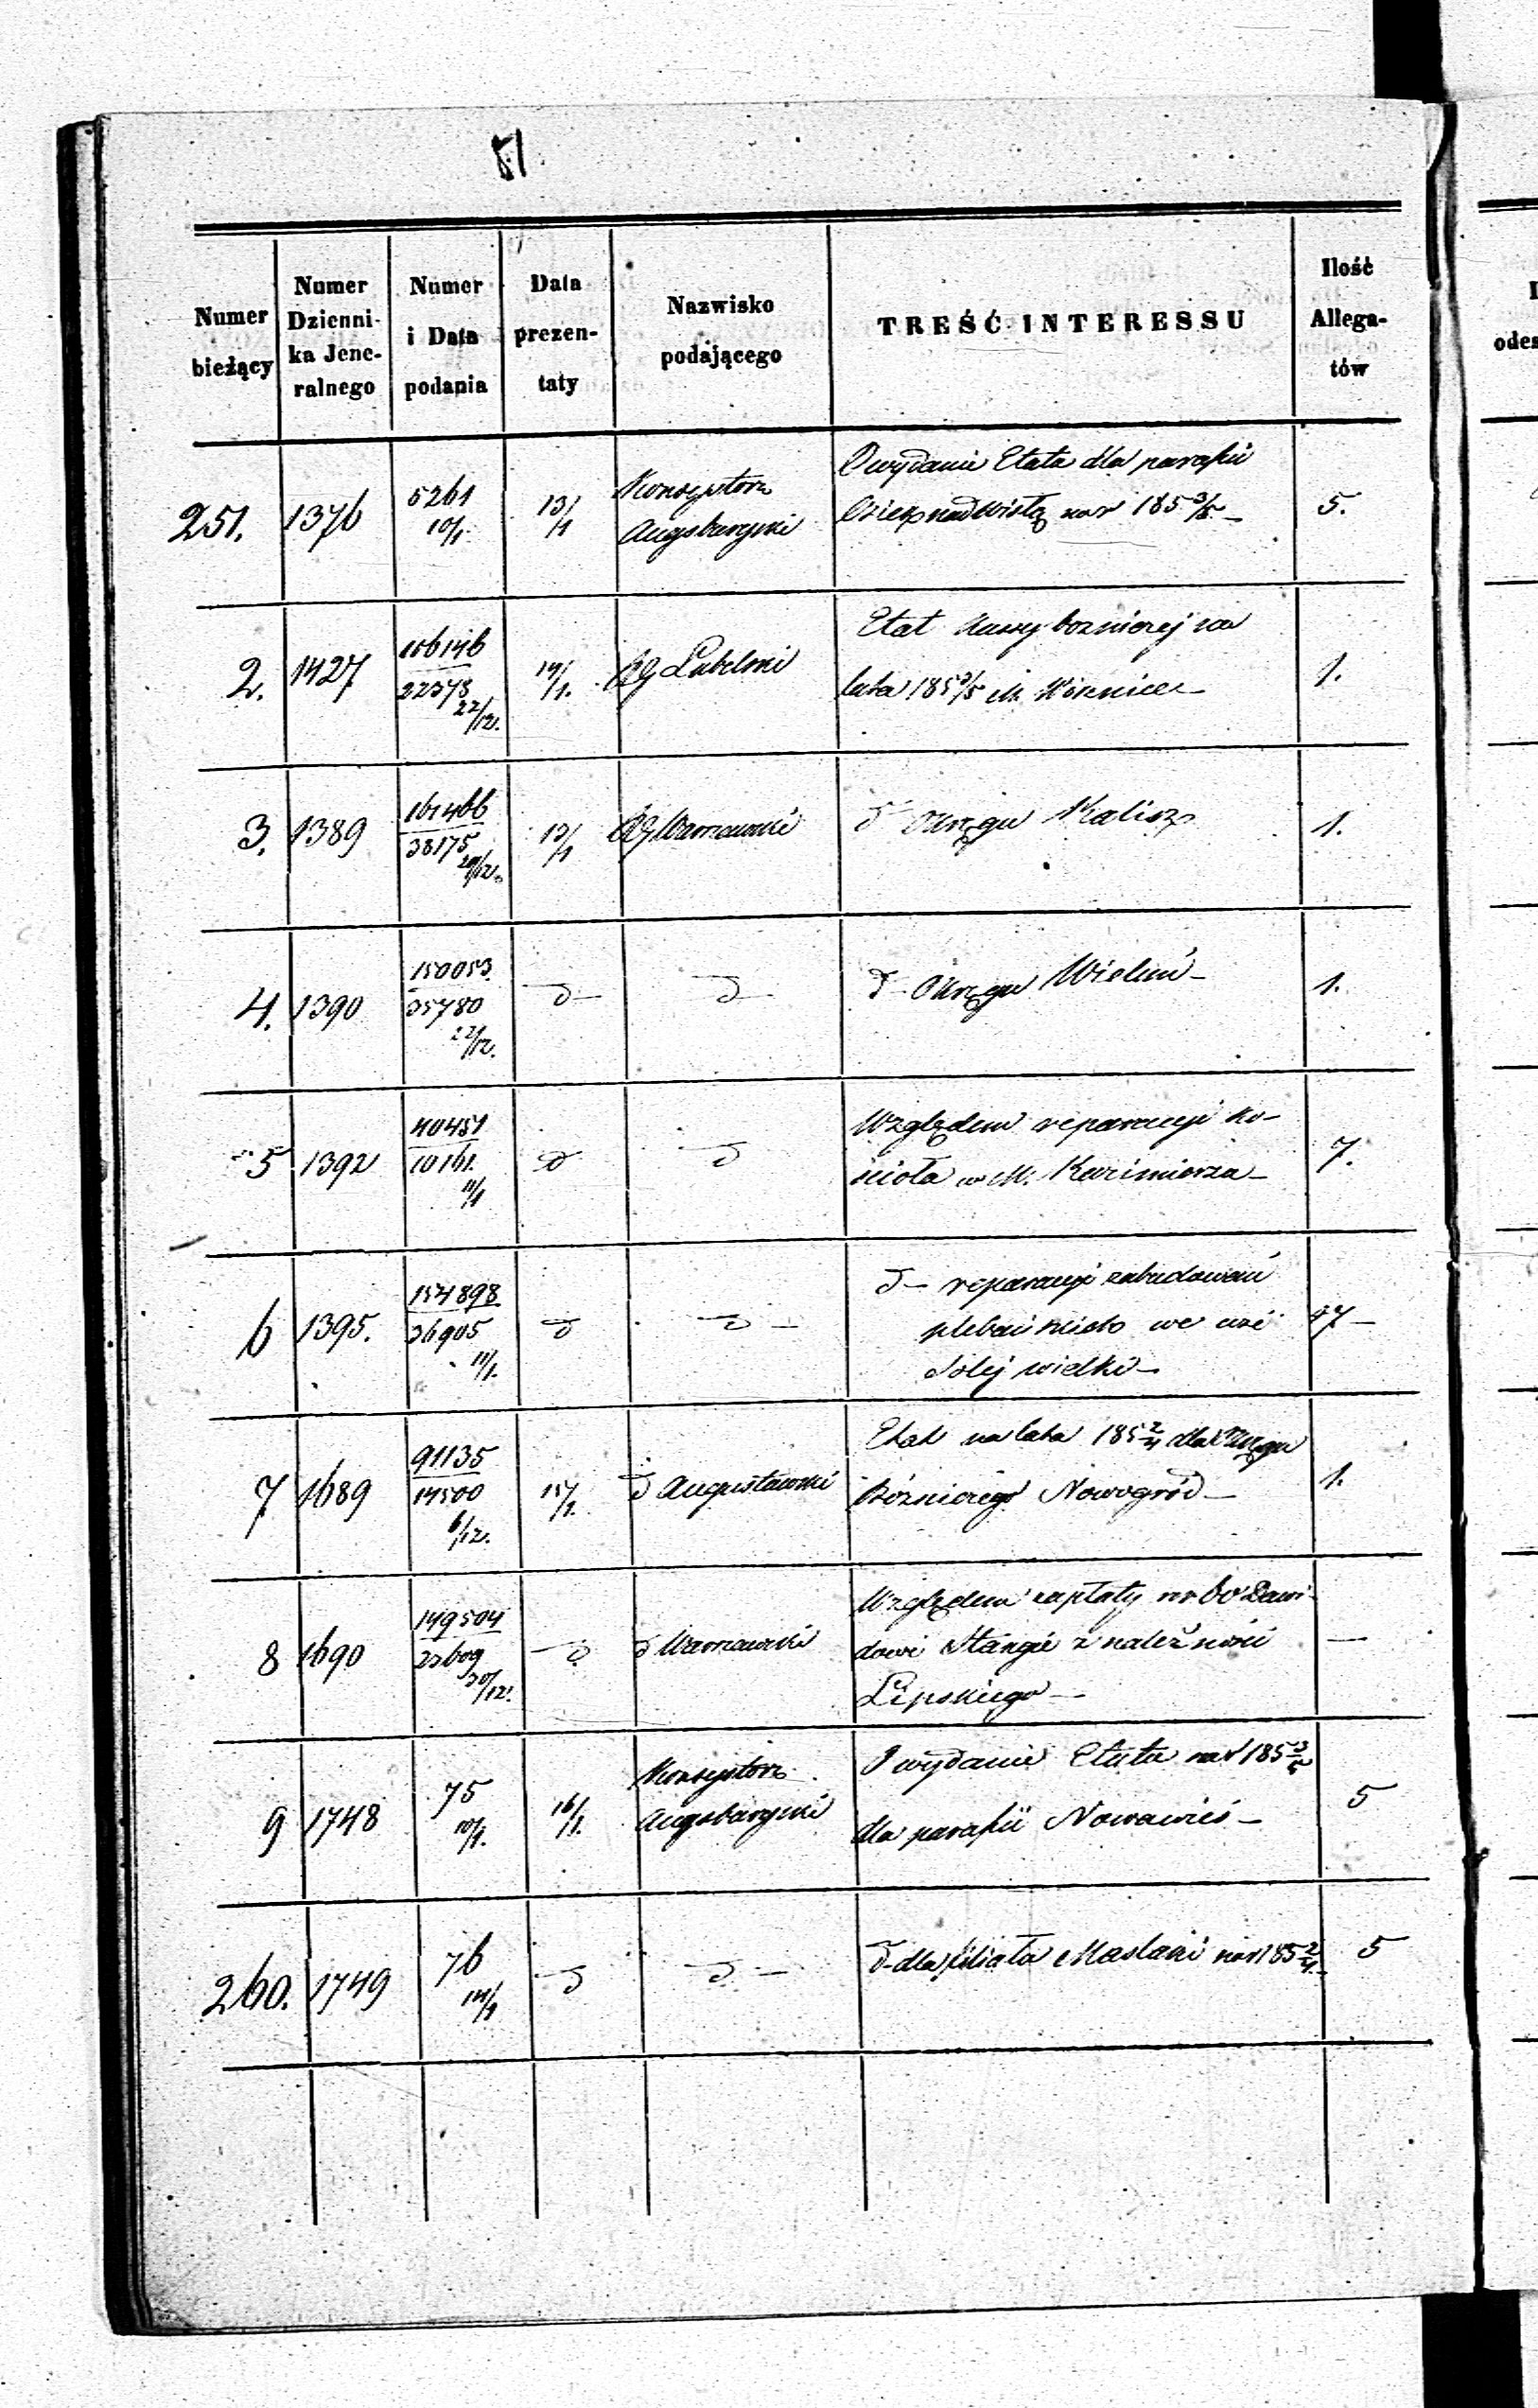 Numer
bieżący
Numer
Dzienni-
ka Jene-
ralnego
Numer
i Data
podania
Data
prezen-
taty
Nazwisko
podającego
TREŚĆ INTERESSU
Ilość
Allega-
tów
251. 1376 5261 10/1 13/1 Konsystorz Augsburgski
O wydanie Etatu dla parafii
Osiek nad Wisłą na r 185 3/5 — 5.
2. 1427 106146 22373 22/12. 14/1. RG Lubelski
Etat Kassy bożniczej na
lata 185 3/5 M. 1.
3. 1389 161466 38175 29/12. 13/1 RG Warszawski
d° Okręgu Kalisz 1.
4. 1390 150053 35780 22/12. d° — d° —
d° Okręgu Wieluń — 1.
5 1392 40451 10161. 11/1 d° d°
Względem reparacyi ko-
ścioła w M. Kazimierza — 7.
6 1395. 154898 36905 11/1. d° d° —
d° — reparacyi zabudowań
plebańskich we wsi
Solej wielki — 47 —
7 1689 91135 14500 6/12. 15/1. d° Augustowski
Etat na lata 185 2/4 dla Okręgu
Bóżniczego Nowogród — 1.
8 1690 149504 23609 30/12. — d° d° Warszawski
Względem zapłaty rs 60 Dawi-
dowi Stangie z należności
Lipskiego — —
9 1748 75 10/1. 16/1. Konsystorz Augsburgski
O wydanie Etatu na r 185 3/5
dla parafii Nowawieś — 5
260. 1749 76 14/1 — d° d° —
d° dla filiału Maslaki na r 185 2/4. 5